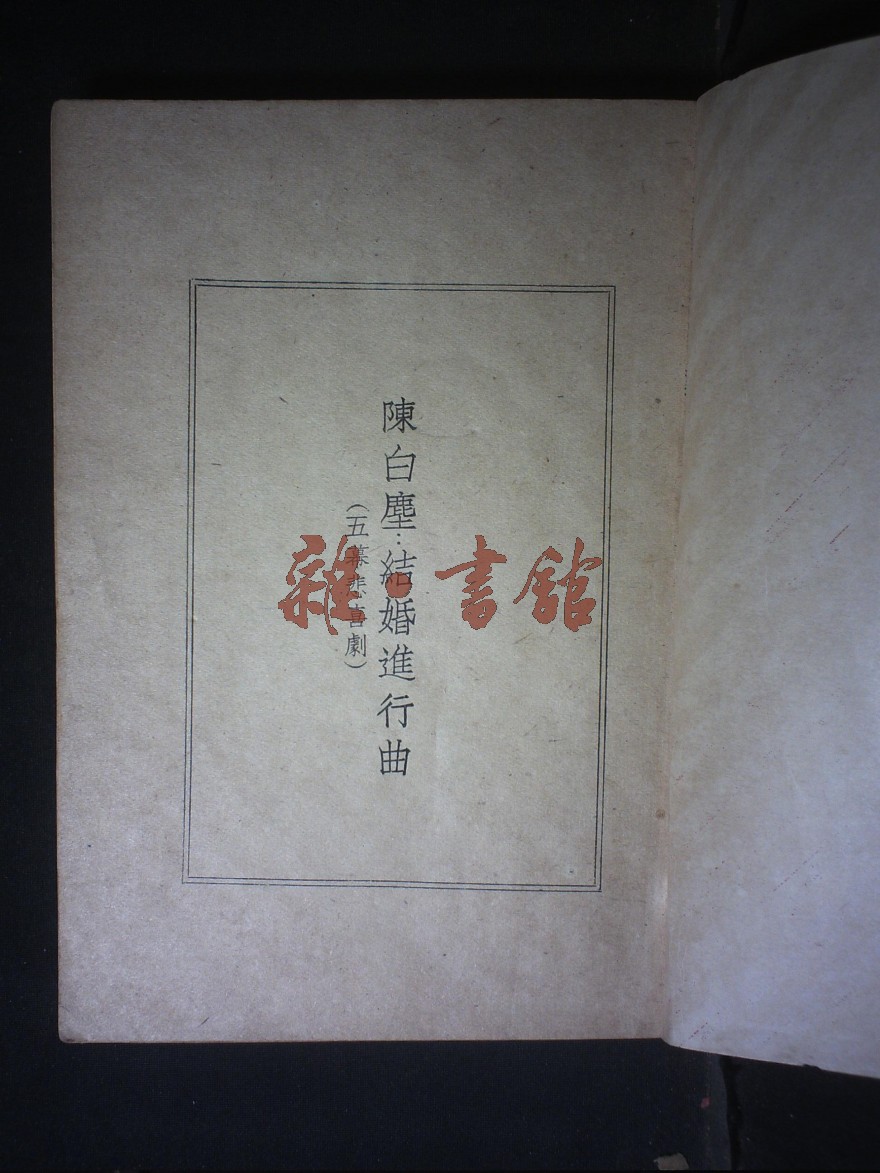 陳白塵:結婚進行曲
(五幕悲喜劇)
雜·書館